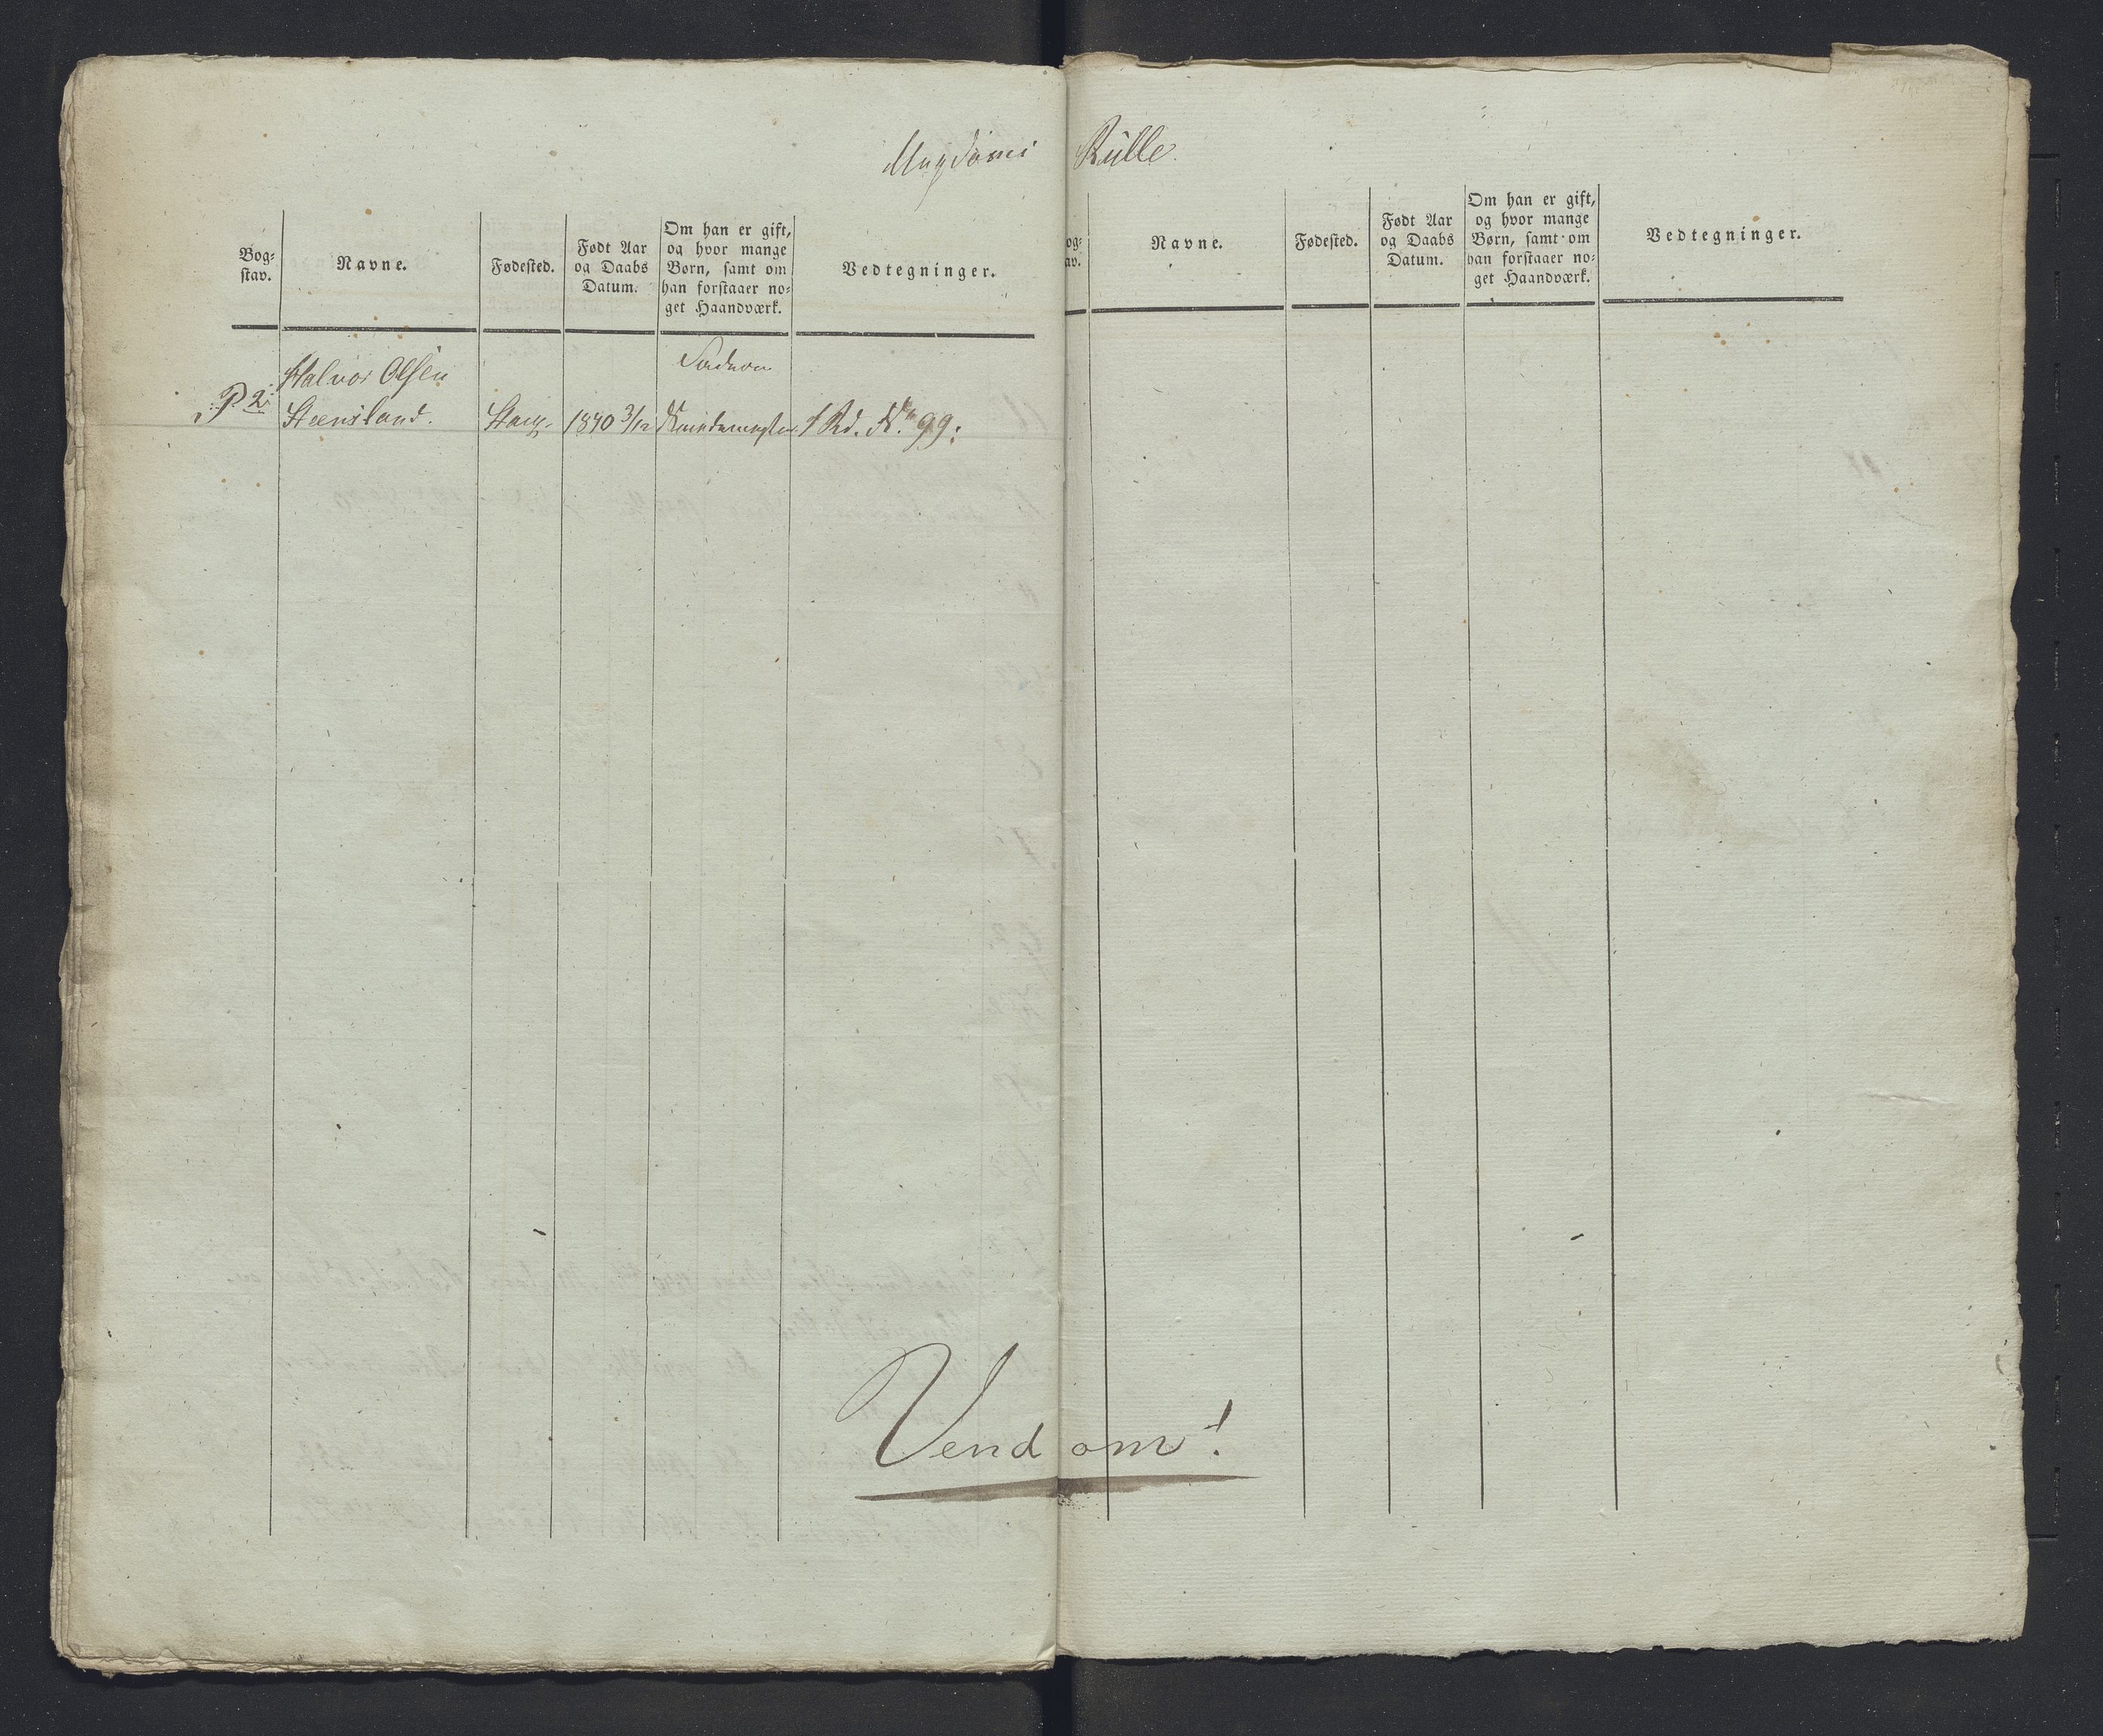 Ungdoms Rulle
Bog-
stav.
Navne.
Fødested.
Født Aar
og Daabs
Datum.
Om han er gift,
og hvor mange
Børn, samt om
han forstaaer no-
get Haandværk.
Vedtegninger.
P 2:
Halvor Olsen
Steensland.
1840 3/12
1 Rd. N.º 99:
og-
av.
Navne.
Fødested.
Født Aar
og Daabs
Datum.
Om han er gift,
og hvor mange
Børn, samt om
han forstaaer no-
get Haandværk.
Vedtegninger.
Vend om!